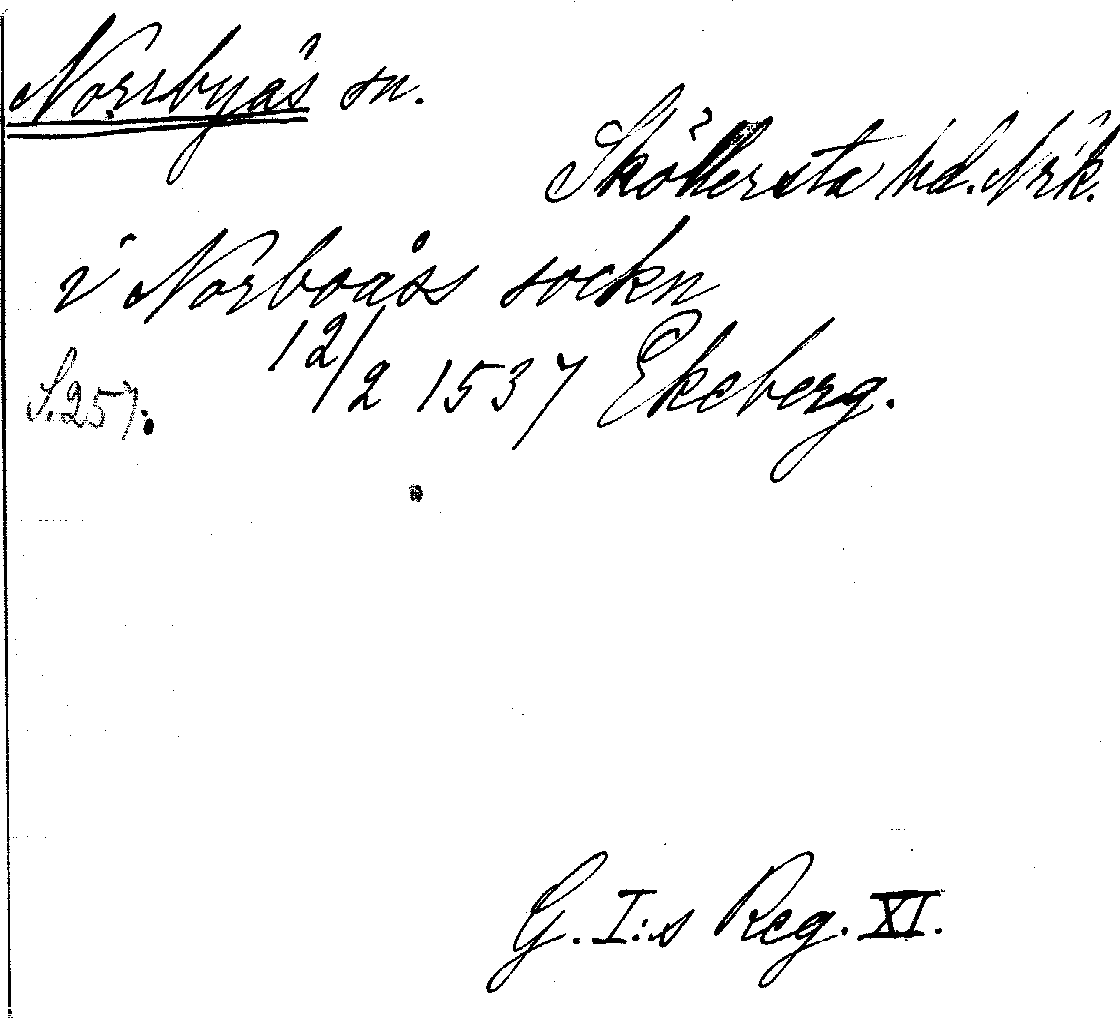 Norrbyås sn.
Sköllersta hd. Nrk.
i Norboåss sockn
12/2 1537 Ekeberg.
S. 257.
G. I:s Reg. XI.